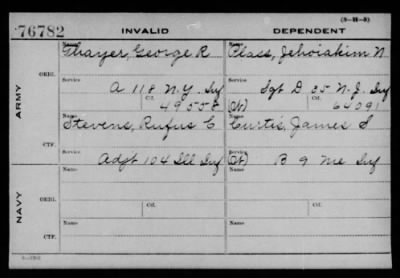 (3-M-3)
76782 INVALID DEPENDENT
Name
Thayer, George R
Plass, Jehoiakim N
ARMY
ORIG.
Service
A 118 N.Y. Inf
Sgt D 25 N.J. Inf
Ctf. 49558
(Ct) Ctf. 64091
Stevens, Rufus C
Curtis, James S
CTF.
Service
Adjt 104 Ill Inf
(Ct) B 9 Me Inf
NAVY
ORIG.
Name
Name
Service
Ctf.
Service
Ctf.
CTF.
Name
Name